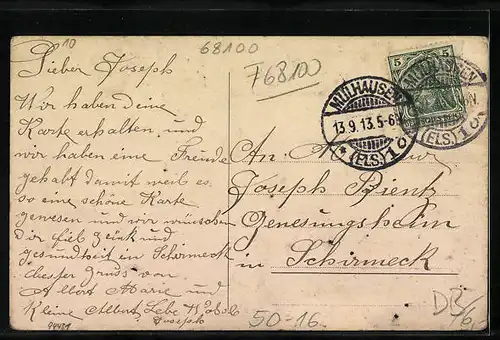 10
68100
F68100
Lieber Joseph
Wir haben deine
Karte erhalten, und
wir haben eine Freude
gehabt damit weil es
so eine schöne Karte
gewesen und wir wünschen
Dir fiel Glück und
gesundheit in Schirmeck
bester gruss von
Albert Marie und
Kleine Albert, Lebe
Joseph
5 5
MÜLHAUSEN
13.9.13.5-6
* (ELS.) 1 c
MÜLHAUSEN
(ELS.) 1 c
An
Joseph Bientz
Genesungsheim
in Schirmeck
50-16